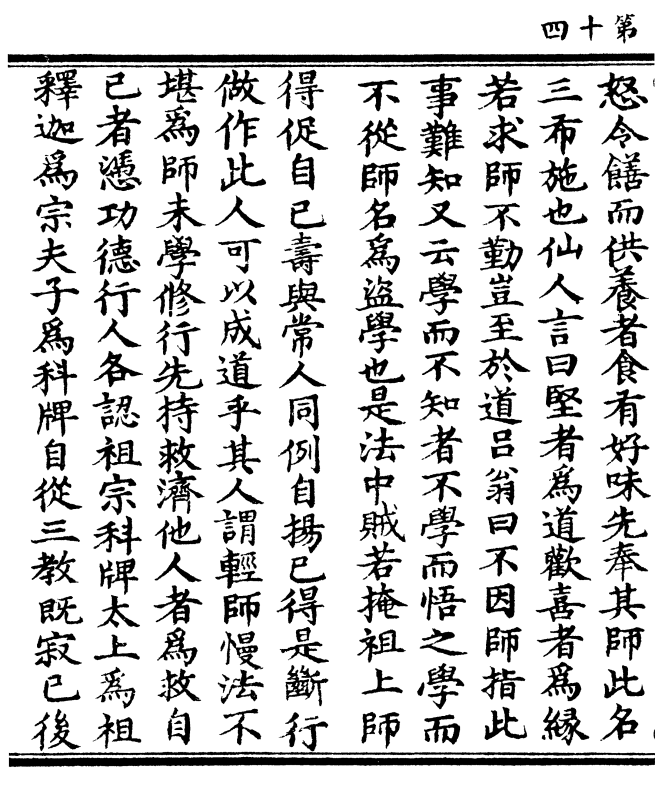 第十四
怒令饍而供養者食有好味先奉其師此名
三布施也仙人言曰堅者爲道歡喜者爲緣
若求師不勤豈至於道呂翁曰不因師指此
事難知又云學而不知者不學而悟之學而
不從師名爲盜學也是法中賊若掩祖上師
得促自己壽與常人同例自揚已得是斷行
做作此人可以成道乎其人謂輕師慢法不
堪爲師未學修行先持救濟他人者爲救自
已者慿功德行人各認祖宗科牌太上爲祖
釋迦爲宗夫子爲科牌自從三教既寂已後